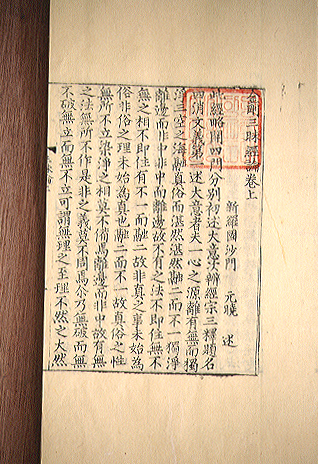 金剛三昧經論卷上
新羅國沙門 元曉 述
此經略開四門分別初述大意次辨經宗三釋題名
四消文義第一述大意者夫一心之源離有無而獨
淨三空之海融眞俗而湛然湛然融二而不一獨淨
離邊而非中非中而離邊故不有之法不卽住無不
無之相不卽住有不一而融二故非眞之事未始爲
俗非俗之理未始爲眞也融二而不一故眞俗之性
無所不立染淨之相莫不備焉離邊而非中故有無
之法無所不作是非之義莫不周焉尒乃無破而無
不破無立而無不立可謂無理之至理不然之大然